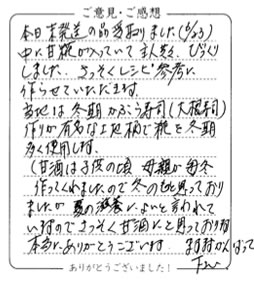 ご意見・ご感想
本日 発送の品 受取りました(6/23)
中に甘糀が入っていて 主人驚き びっくり
しました。さっそくレシピ参考に
作らせていただきます。
当地は冬期 かぶら寿司(大根寿司)
作りが有名な土地柄で糀を冬期
多く使用します。
(甘酒は子供の頃 母親が毎冬
作ってくれましたので冬の と思っており
ましたが 夏の滋養に よいと言われて
いますのでさっそく甘酒にと思っております
本当にありがとうございます。 がんばって
下さい
ありがとうございました!